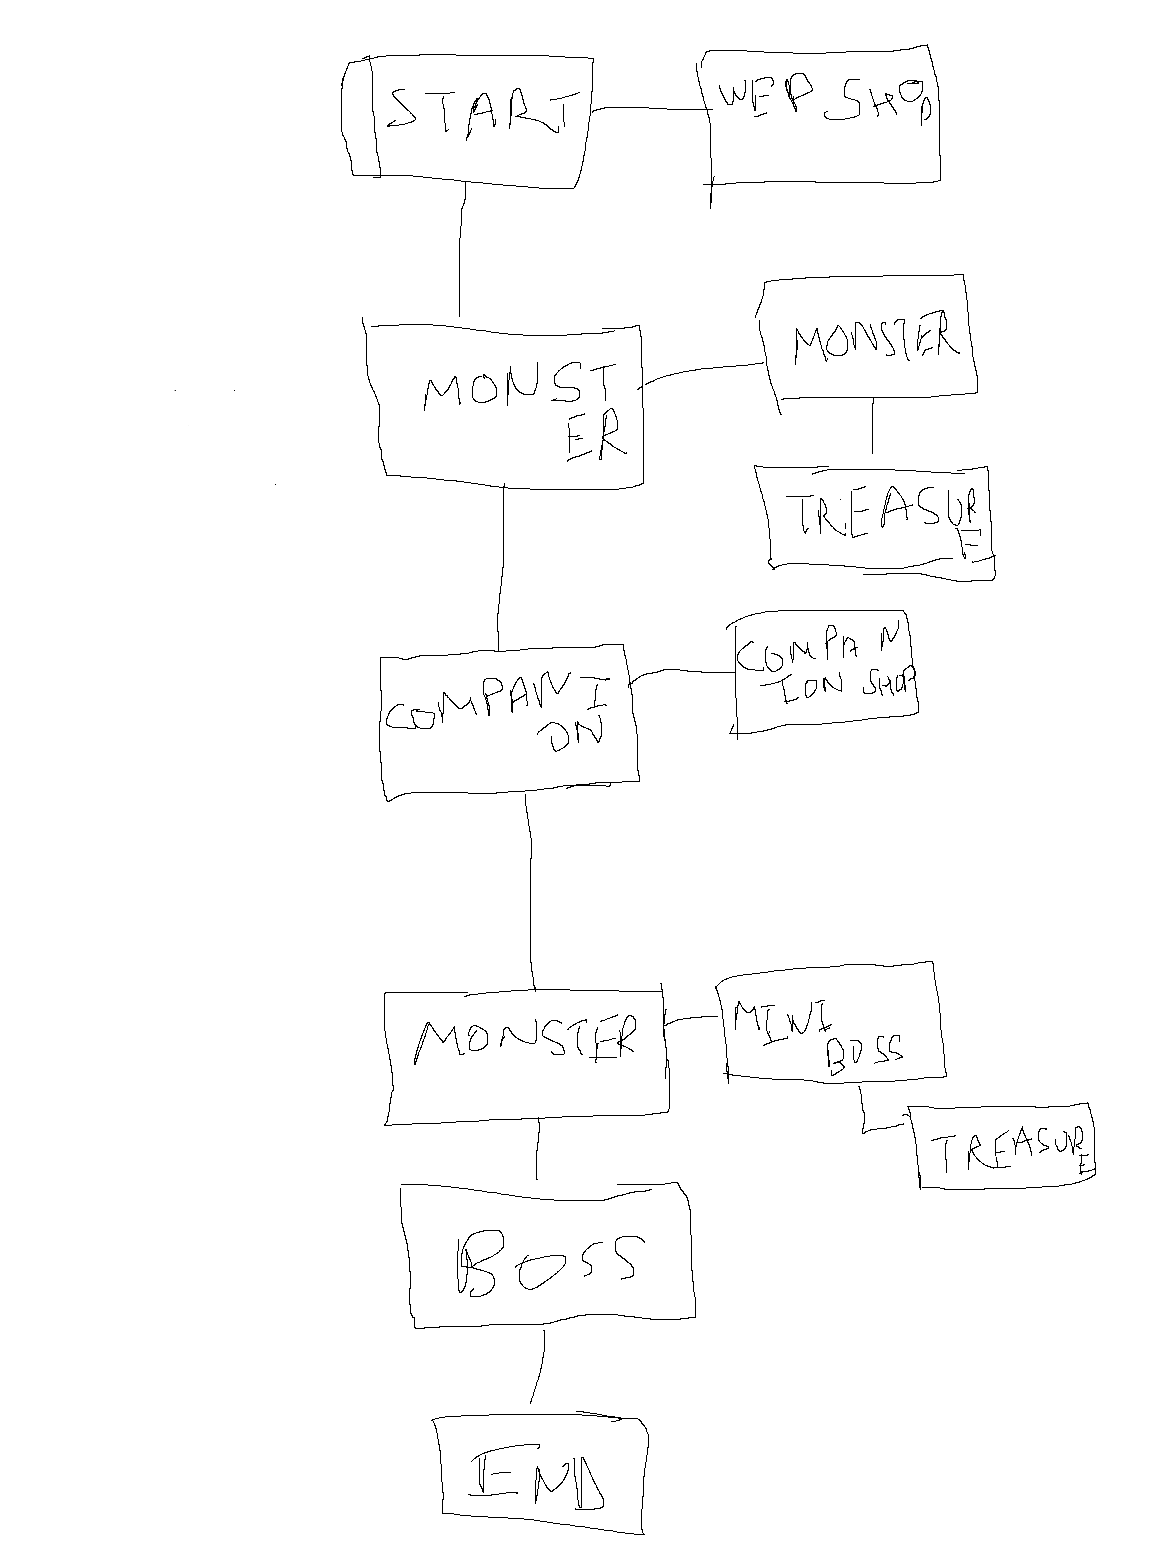 START
WEP SHOP
MONST
ER
MONSTER
TREASUR
E
COMPANI
ON
COMPAN
ION SHOP
MONSTER
MINI
BOSS
TREASURE
BOSS
END